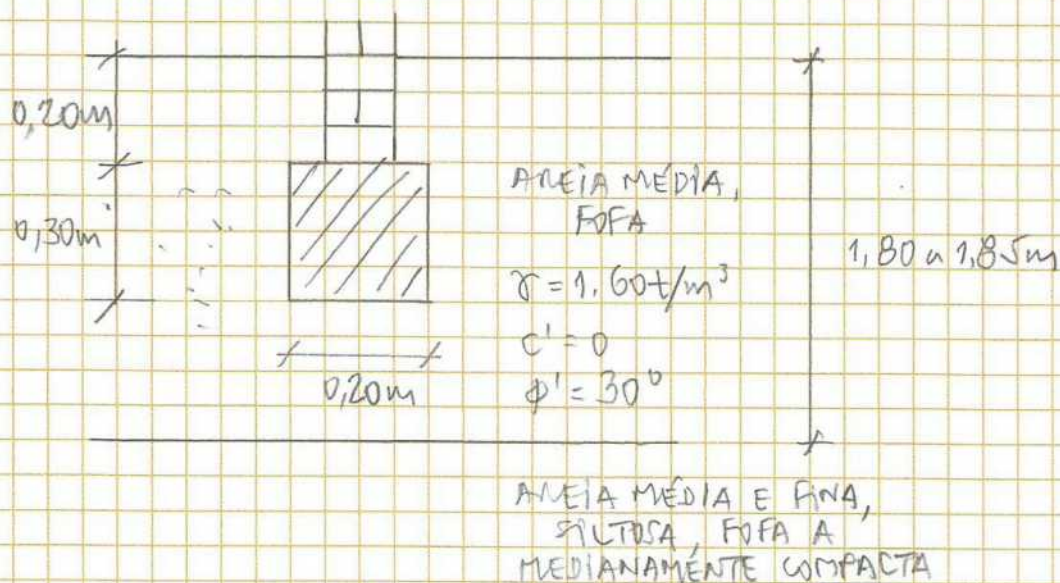 0,20m
0,30m
0,20m
AREIA MÉDIA,
FOFA
γ = 1.60t/m³
c' = 0
φ' = 30°
1,80 a 1,85m
AREIA MÉDIA E FINA,
SILTOSA, FOFA A
MEDIANAMENTE COMPACTA